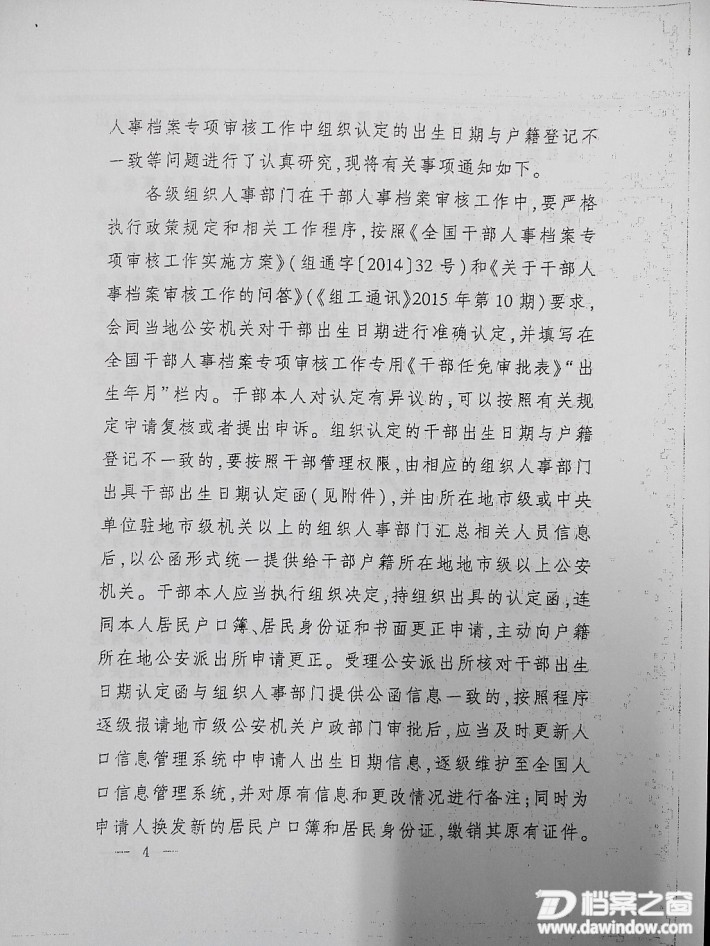 人事档案专项审核工作中组织认定的出生日期与户籍登记不
一致等问题进行了认真研究,现将有关事项通知如下。
各级组织人事部门在干部人事档案审核工作中,要严格
执行政策规定和相关工作程序,按照《全国干部人事档案专
项审核工作实施方案》(组通字〔2014〕32号)和《关于干部人
事档案审核工作的问答》(《组工通讯》2015年第10期)要求,
会同当地公安机关对干部出生日期进行准确认定,并填写在
全国干部人事档案专项审核工作专用《干部任免审批表》“出
生年月”栏内。干部本人对认定有异议的,可以按照有关规
定申请复核或者提出申诉。组织认定的干部出生日期与户籍
登记不一致的,要按照干部管理权限,由相应的组织人事部门
出具干部出生日期认定函(见附件),并由所在地市级或中央
单位驻地市级机关以上的组织人事部门汇总相关人员信息
后,以公函形式统一提供给干部户籍所在地地市级以上公安
机关。干部本人应当执行组织决定,持组织出具的认定函,连
同本人居民户口簿、居民身份证和书面更正申请,主动向户籍
所在地公安派出所申请更正。受理公安派出所核对干部出生
日期认定函与组织人事部门提供公函信息一致的,按照程序
逐级报请地市级公安机关户政部门审批后,应当及时更新人
口信息管理系统中申请人出生日期信息,逐级维护至全国人
口信息管理系统,并对原有信息和更改情况进行备注;同时为
申请人换发新的居民户口簿和居民身份证,缴销其原有证件。
— 4 —
档案之窗
www.dawindow.com